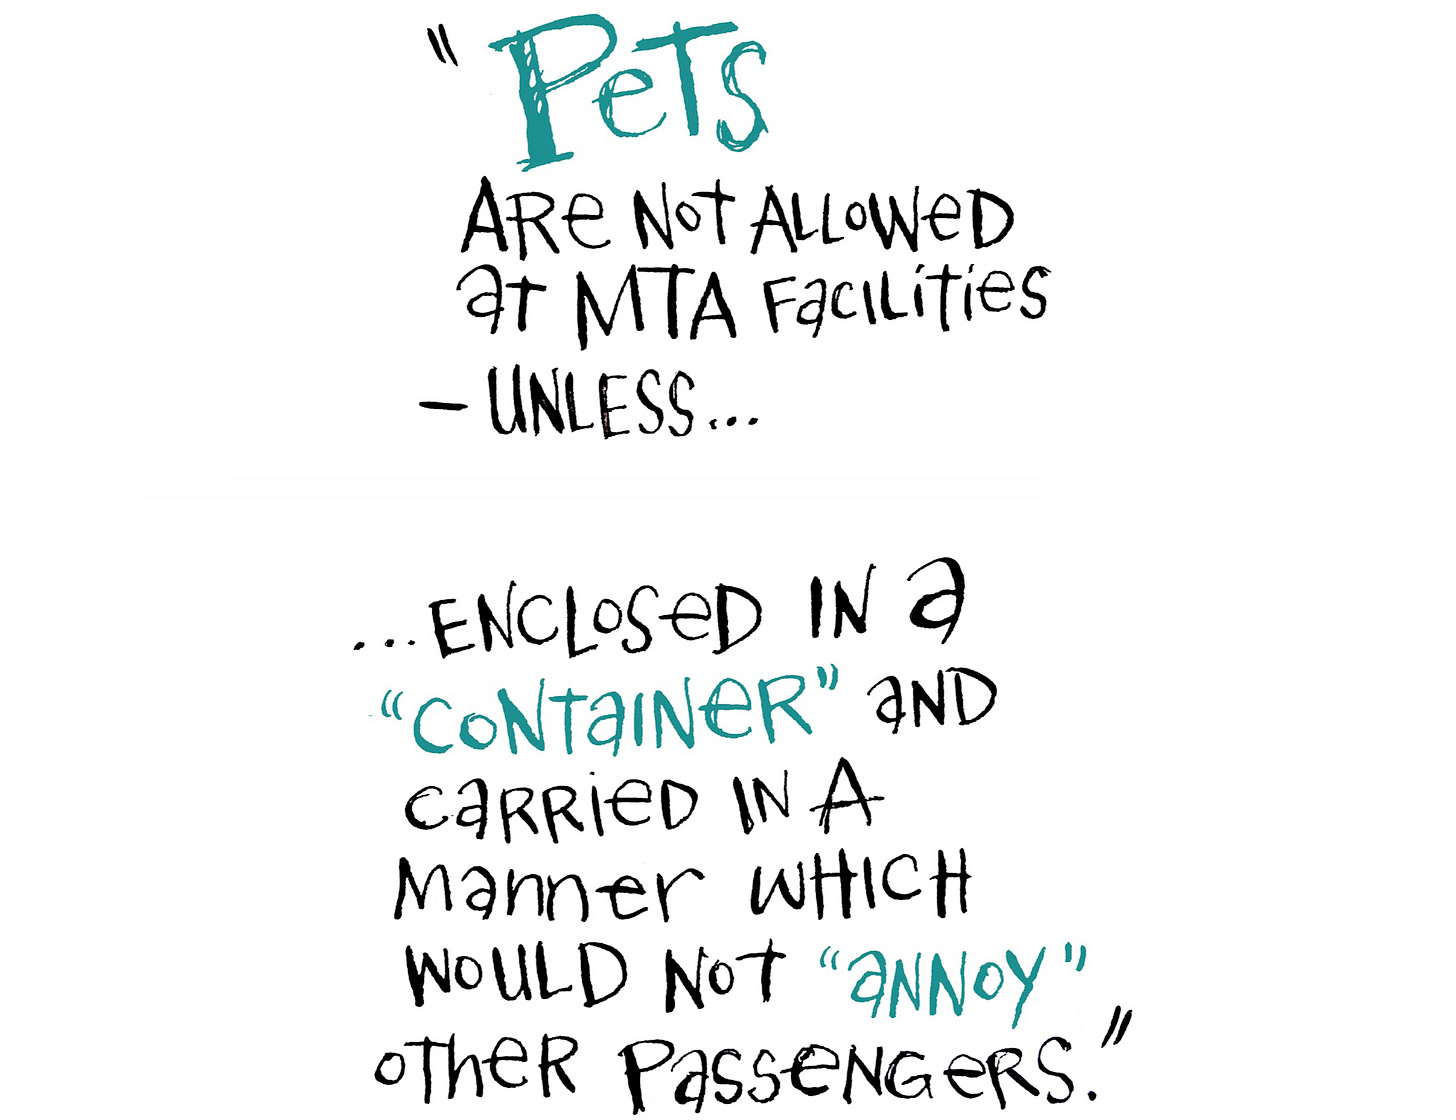 "Pets
ARe Not ALLoWeD
at MTA Facilities
– UNLESS...
...ENCLoSeD IN a
"CoNtaINeR" aND
CaRRieD IN A
Manner WHICH
WoULD Not "aNNoy"
oTheR PaSSeNGeRS."